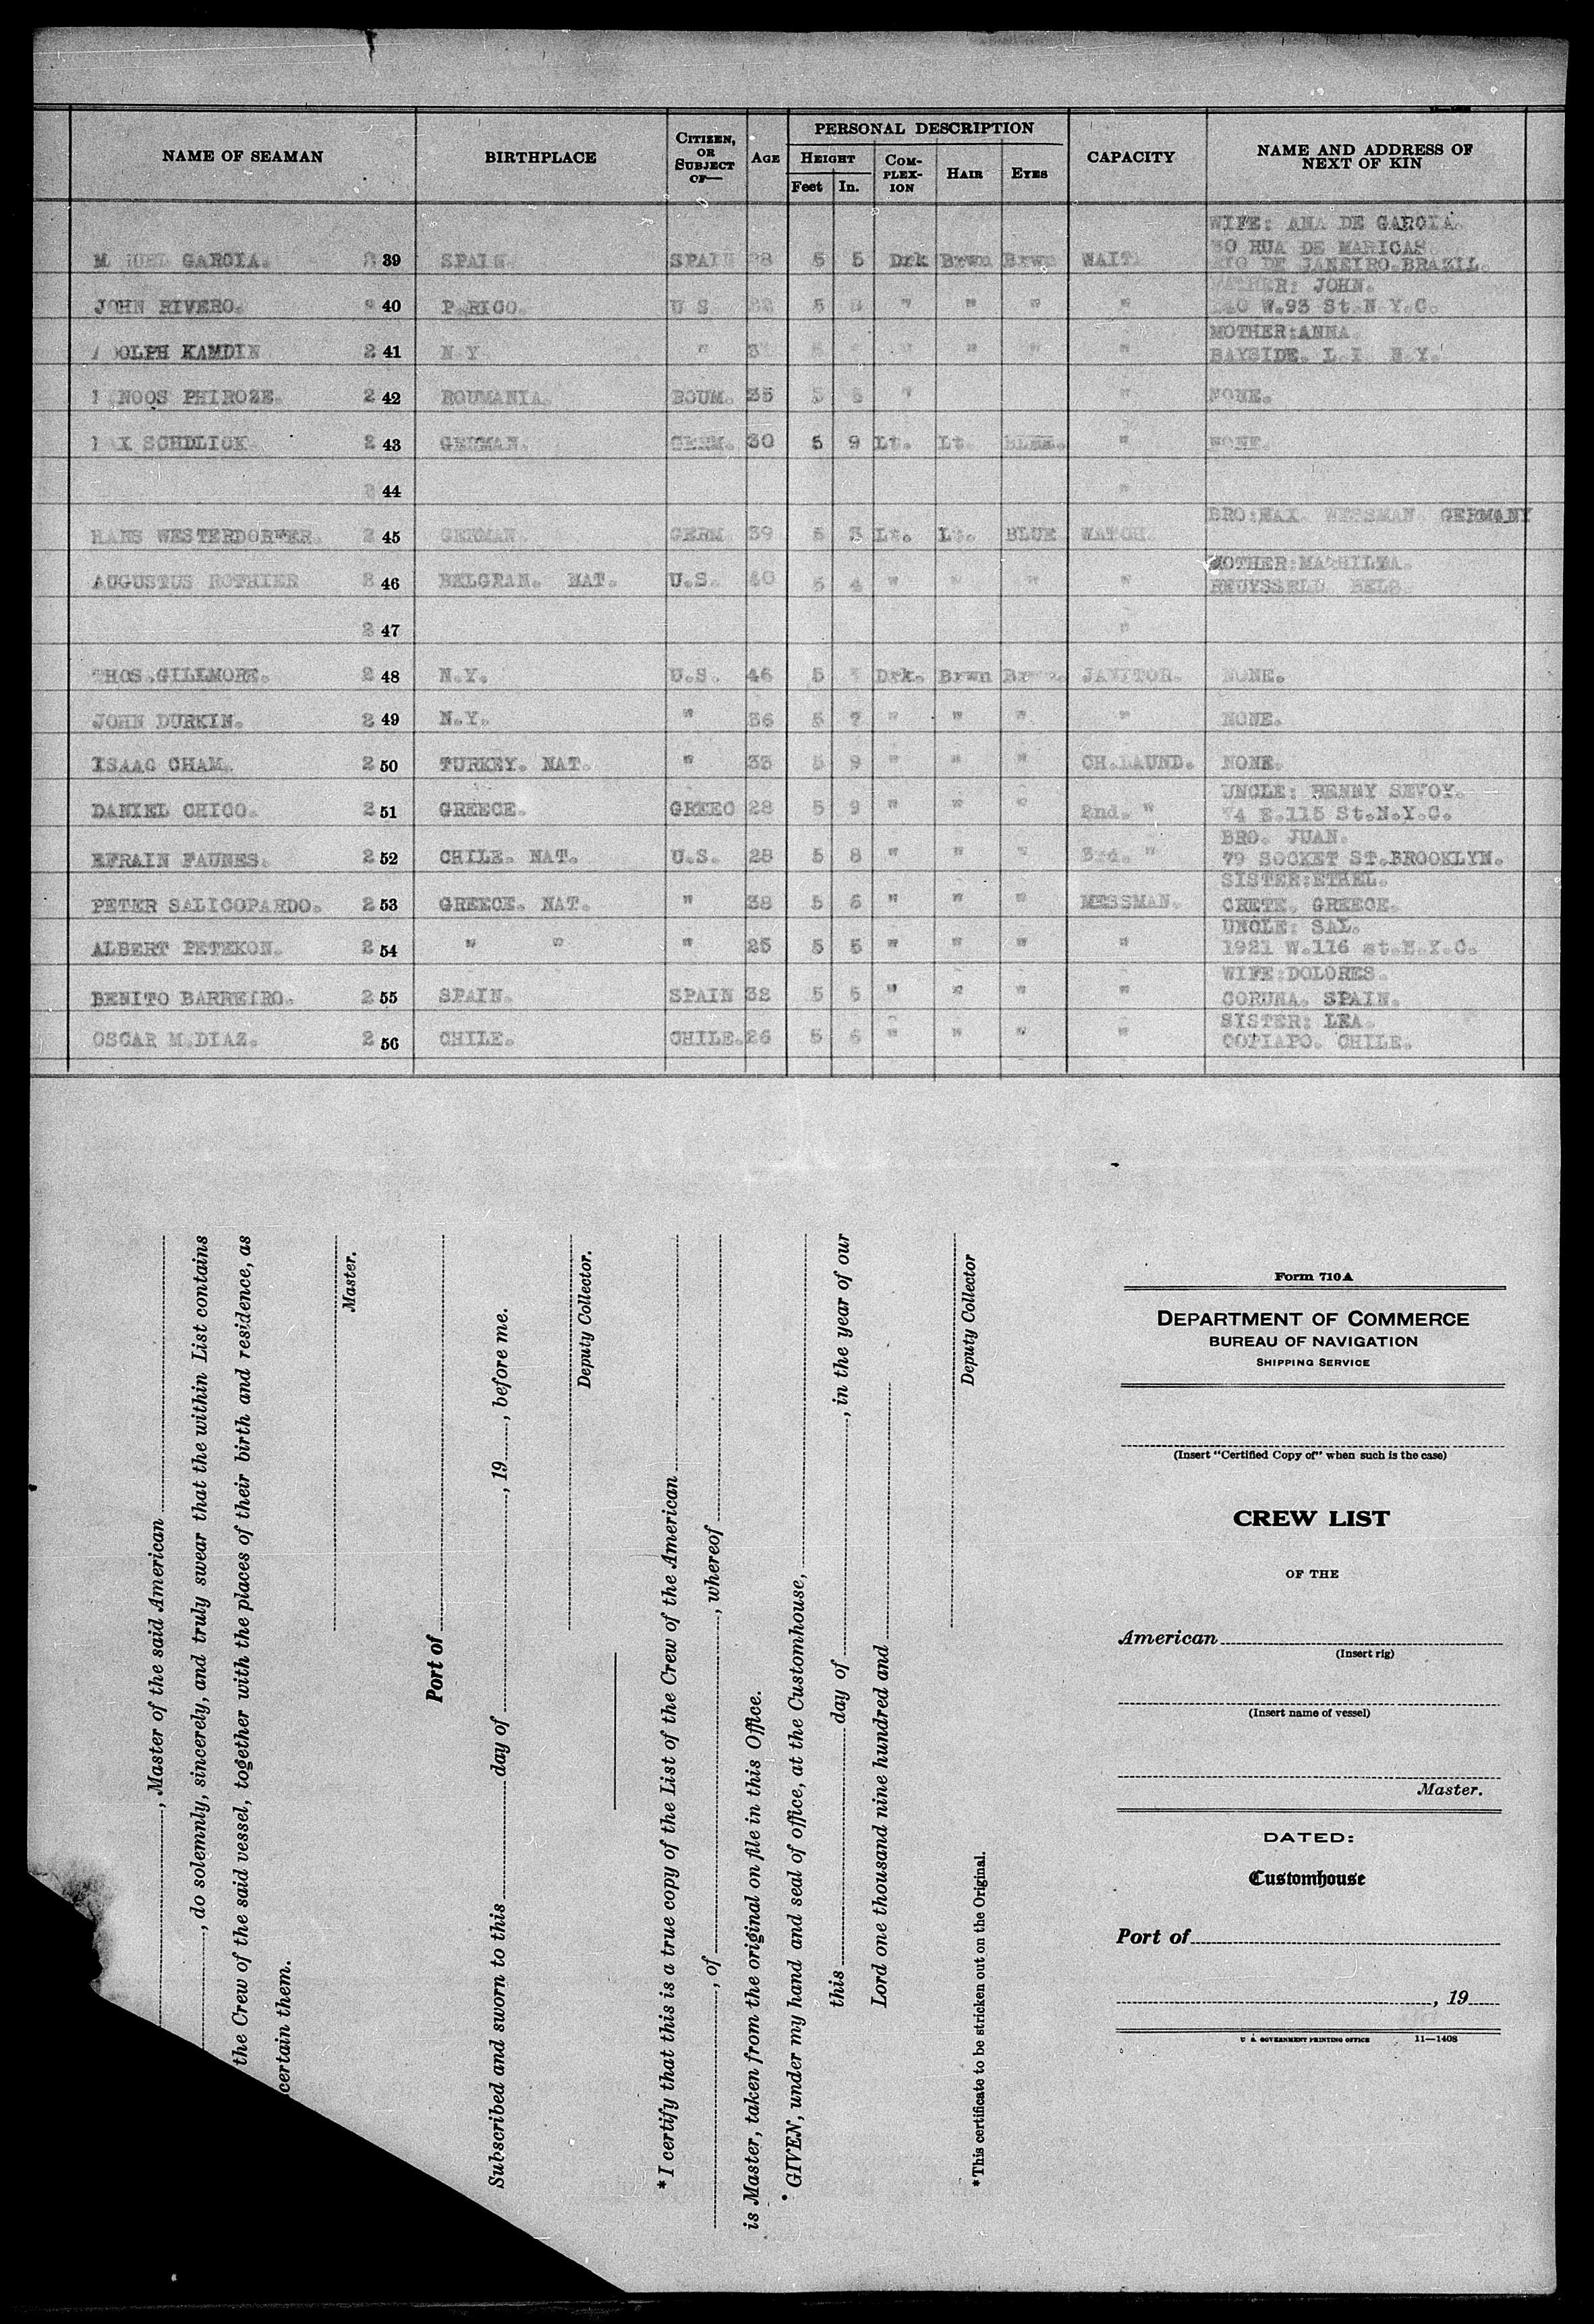 NAME OF SEAMAN BIRTHPLACE CITIZEN, OR SUBJECT OF— AGE PERSONAL DESCRIPTION CAPACITY NAME AND ADDRESS OF NEXT OF KIN
HEIGHT COM-PLEX-ION HAIR EYES
Feet In.
WIFE: ANA DE GARCIA.
RUA DE MARICAS
GARCIA. 39 SPAIN. SPAIN 5 5 Drk Brwn Brwn WAIT. RIO DE JANEIRO.BRAZIL.
FATHER: JOHN.
JOHN RIVERO. 40 P.RICO. U S 5 " " " " W.93 St.N Y.C.
MOTHER:ANNA.
OLPH KAMDIN 2 41 N Y " " " " " BAYSIDE. L.I N.Y.
NOOS PHIROZE. 2 42 ROUMANIA. ROUM. 35 5 " " NONE.
X SCHDLICK 2 43 GERMAN. GERM. 30 5 9 Lt. Lt. BLUE. " NONE.
44 "
BRO:MAX. WESSMAN. GERMANY
HANS WESTERDORWER. 2 45 GERMAN. GERM 39 5 3 Lt. Lt. BLUE WATCH.
MOTHER:
AUGUSTUS ROTHIER 46 BELGRAN. NAT. U.S. 40 5 4 " " " " BELG.
2 47 "
THOS.GILLMORE. 2 48 N.Y. U.S. 46 5 Drk. Brwn Brwn. JANITOR. NONE.
JOHN DURKIN. 2 49 N.Y. " 36 5 7 " " " " NONE.
ISAAC CHAM. 2 50 TURKEY. NAT. " 33 5 9 " " " CH.LAUND. NONE.
UNCLE: BENNY SEVOY.
DANIEL CHICO. 2 51 GREECE. GREEC 28 5 9 " " " 2nd. " 74 E.115 St.N.Y.C.
BRO. JUAN.
EFRAIN FAUNES. 2 52 CHILE. NAT. U.S. 28 5 8 " " " 3rd. " 79 SOCKET ST.BROOKLYN.
SISTER:ETHEL.
PETER SALICOPARDO. 2 53 GREECE. NAT. " 38 5 6 " " " MESSMAN. CRETE. GREECE.
UNCLE: SAL.
ALBERT PETEKON. 2 54 " " " 25 5 5 " " " " 1921 W.116 st.N.Y.C.
WIFE:DOLORES.
BENITO BARREIRO. 2 55 SPAIN. SPAIN 32 5 5 " " " " CORUNA. SPAIN.
SISTER: LEA.
OSCAR M.DIAZ. 2 56 CHILE. CHILE. 26 5 6 " " " " COPIAPO. CHILE.
, Master of the said American
, do solemnly, sincerely, and truly swear that the within List contains
the Crew of the said vessel, together with the places of their birth and residence, as
certain them.
Master.
Port of
Subscribed and sworn to this day of , 19 , before me.
Deputy Collector.
*I certify that this is a true copy of the List of the Crew of the American
, of , whereof
is Master, taken from the original on file in this Office.
GIVEN, under my hand and seal of office, at the Customhouse,
this day of , in the year of our
Lord one thousand nine hundred and
Deputy Collector
*This certificate to be stricken out on the Original.
Form 710A
DEPARTMENT OF COMMERCE
BUREAU OF NAVIGATION
SHIPPING SERVICE
(Insert "Certified Copy of" when such is the case)
CREW LIST
OF THE
American
(Insert rig)
(Insert name of vessel)
Master.
DATED:
Customhouse
Port of
, 19
U. S. GOVERNMENT PRINTING OFFICE 11—1408